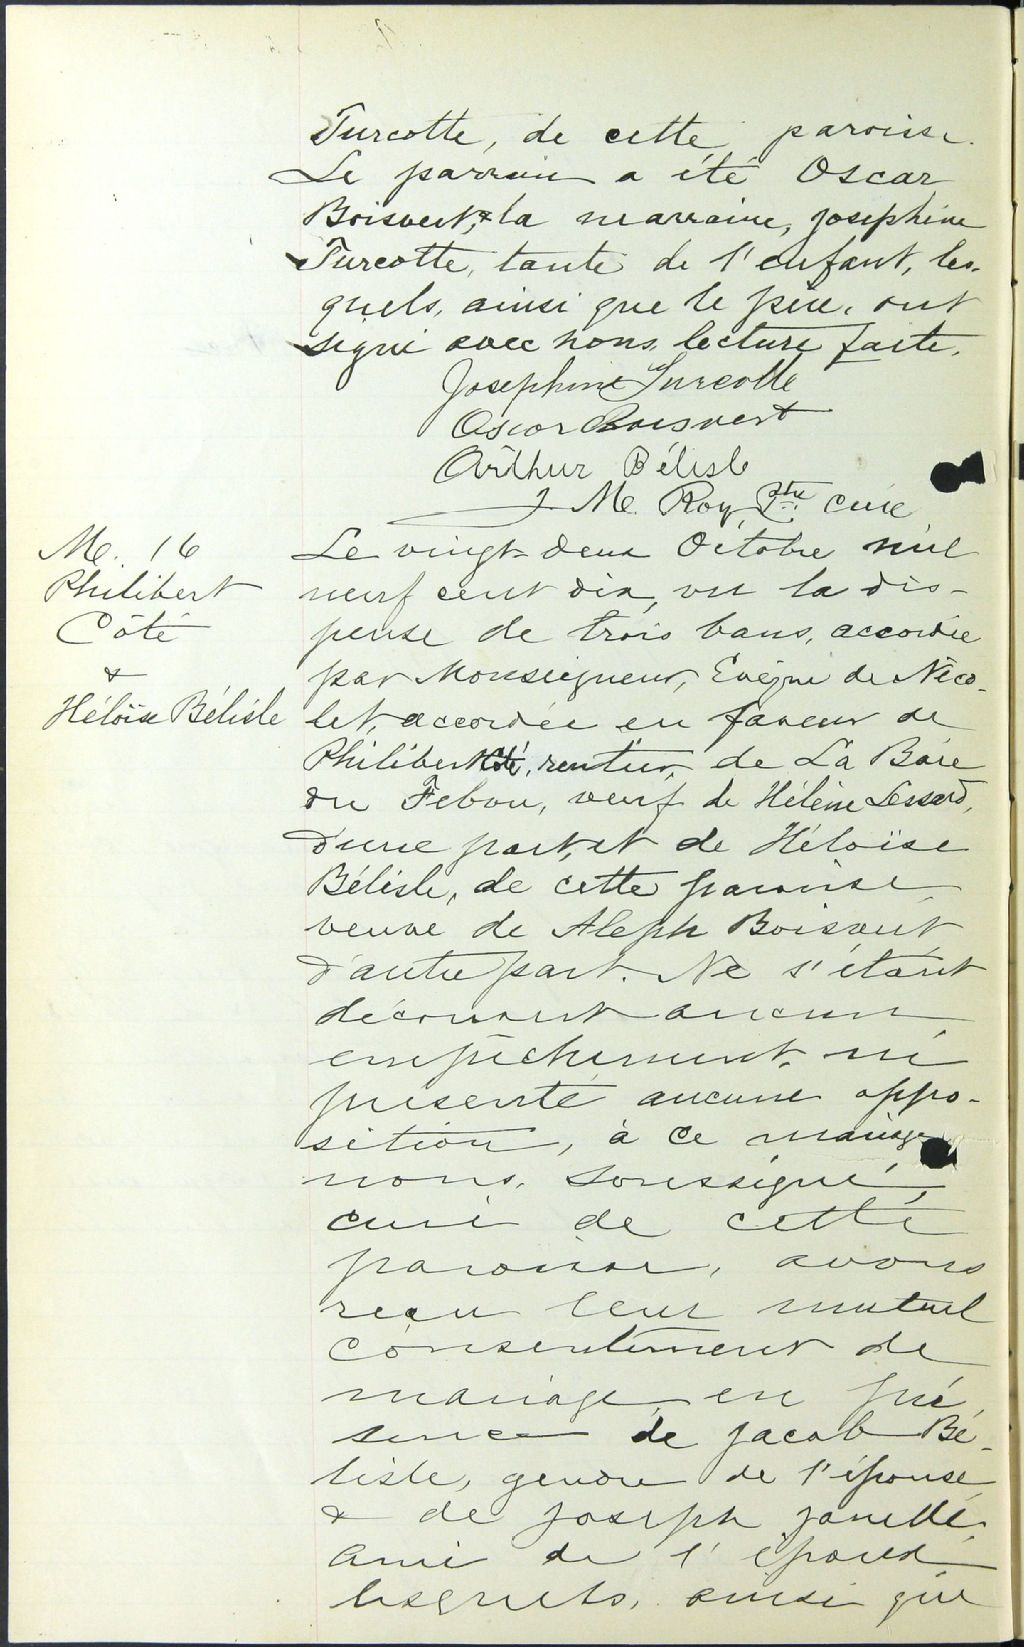 Turcotte, de cette paroisse.
Le parrain a été Oscar
Boisvert, & la marraine, Josephine
Turcotte, tante de l'enfant, les-
quels, ainsi que le père, ont
signé avec nous, lecture faite.
Josephine Turcotte
Oscar Boisvert
Arthur Bélisle
J. M. Roy Ptre curé
M. 16
Philibert
Côté
&
Héloïse Bélisle
Le vingt-deux Octobre mil
neuf cent dix, vu la dis-
pense de trois bans, accordée
par Monseigneur, Evêque de Nico-
let, accordée en faveur de
Philibert Côté, rentier, de La Baie
du Febvre, veuf de Hélène Lessard,
d'une part, et de Héloïse
Bélisle, de cette paroisse,
veuve de Aleph Boisvert,
d'autre part. Ne s'étant
découvert aucun
empêchement, ni
présenté aucune oppo-
sition, à ce mariage
nous, soussigné,
curé de cette
paroisse, avons
reçu leur mutuel
consentement de
mariage, en pré
sence de Jacob Bé-
lisle, gendre de l'épouse,
& de Joseph Janelle,
ami de l'époux
lesquels, ainsi que